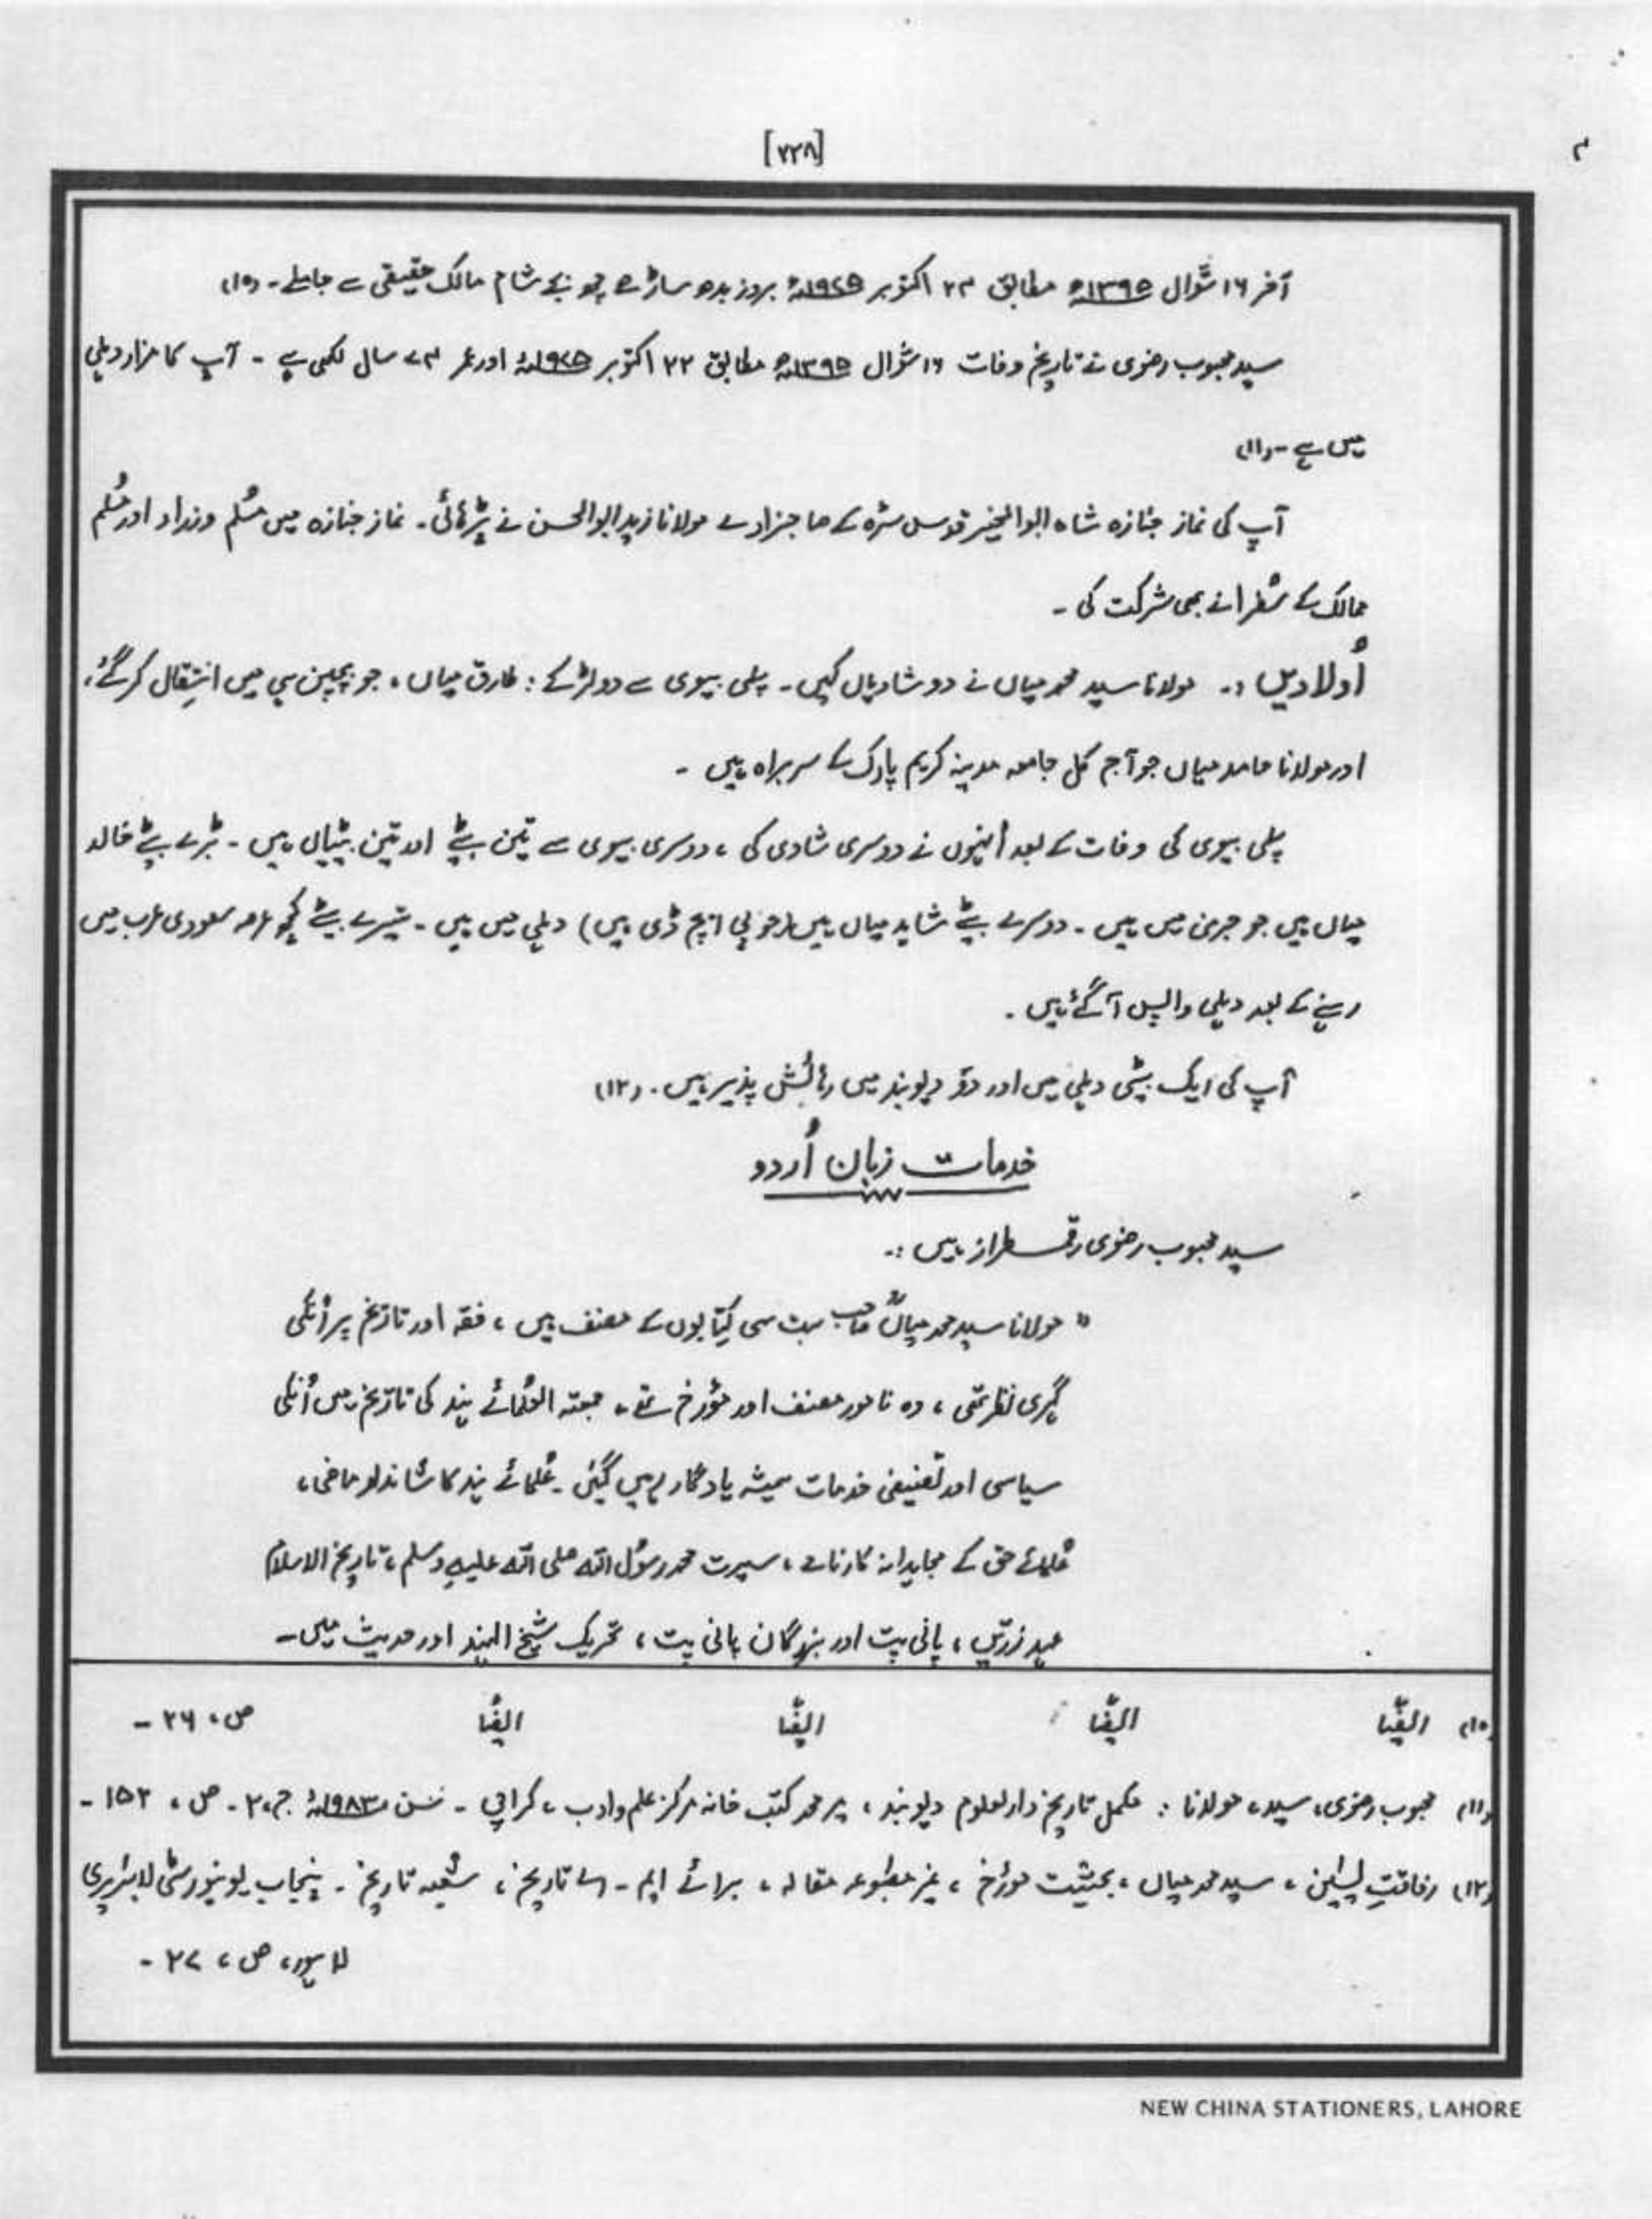 [۷۲۸]
آخر ۱۶ شوّال ۱۳۹۵ھ مطابق ۲۳ اکتوبر ۱۹۷۵ء بروز بدھ ساڑھے چھ بجے شام مالک حقیقی سے جا ملے۔ (۱۰)
سید محبوب رضوی نے تاریخ وفات ۱۶ شوّال ۱۳۹۵ھ مطابق ۲۲ اکتوبر ۱۹۷۵ء اور عمر ۷۴ سال لکھی ہے ۔ آپ کا مزار دہلی
میں ہے ۔ (۱۱)
آپ کی نماز جنازہ شاہ ابوالخیر قدوس سرّہ کے صاحبزادے مولانا زید ابوالحسن نے پڑھائی۔ نماز جنازہ میں مُسلم وزراء اور مُسلم
ممالک کے سُفرا نے بھی شرکت کی ۔
اُولادیں :۔ مولانا سید محمد میاں نے دو شادیاں کیں ۔ پہلی بیوی سے دو لڑکے : طارق میاں ، جو بچپن ہی میں انتِقال کر گئے،
اور مولانا حامد میاں جو آج کل جامعہ مدینہ کریم پارک کے سربراہ ہیں ۔
پہلی بیوی کی وفات کے بعد اُنہوں نے دوسری شادی کی ، دوسری بیوی سے تین بیٹے اور تین بیٹیاں ہیں ۔ بڑے بیٹے خالد
میاں ہیں جو جرمنی میں ہیں ۔ دوسرے بیٹے شاہد میاں ہیں (جو پی ایچ ڈی ہیں) دہلی میں ہیں ۔ تیسرے بیٹے کچھ عرصہ سعودی عرب میں
رہنے کے بعد دہلی واپس آ گئے ہیں ۔
آپ کی ایک بیٹی دہلی میں اور دو دیوبند میں رہائش پذیر ہیں ۔ (۱۲)
خدمات زبان اُردو
سید محبوب رضوی رقمطراز ہیں :۔
" مولانا سید محمد میاںؒ صاحب بہت سی کتابوں کے مصنف ہیں ، فقہ اور تاریخ پر اُنکی
گہری نظر تھی ، وہ نامور مصنف اور مؤرخ تھے ، جمعتہ العُلمائے ہند کی تاریخ میں اُنکی
سیاسی اور تصنیفی خدمات ہمیشہ یادگار رہیں گیئں ۔ عُلمائے ہند کا شاندار ماضی ،
عُلمائے حق کے مجاہدانہ کارنامے ، سیرت محمد رسوُل اللہ صلی اللہ علیہِ وسلم ، تاریخ الاسلام
عہد زرّیں ، پانی پت اور بزرگان پانی پت ، تحریک شیخ الہند اور حدیث میں ۔
(۱۰) ایضًا ایضًا ایضًا ایضًا ص ، ۲۶ ۔
(۱۱) محبوب رضوی، سید، مولانا : مکمل تاریخ دارالعلوم دیوبند ، میر محمد کتب خانہ مرکز علم و ادب ، کراچی ۔ سن ۱۹۸۳ء ج ، ۲ ۔ ص ، ۱۵۲ ۔
(۱۲) رفاقتِ یٰسین ، سید محمد میاں ، بحیثیت مورٔخ ، غیر مطبوعہ مقالہ ، برائے ایم ۔ اے تاریخ ، شُعبہ تاریخ ۔ پنجاب یونیورسٹی لائبریری
لاہور ، ص ، ۲۷ ۔
NEW CHINA STATIONERS, LAHORE